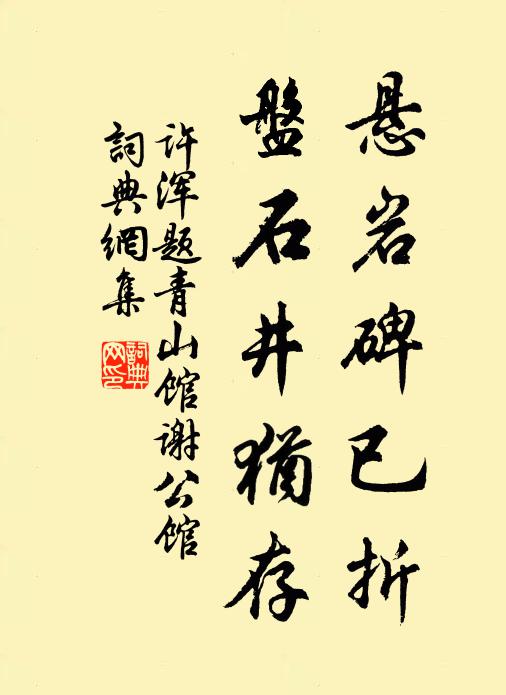 悬岩碑已折
盤石井猶存
许浑题青山馆谢公馆
詞典網集
詞典网印